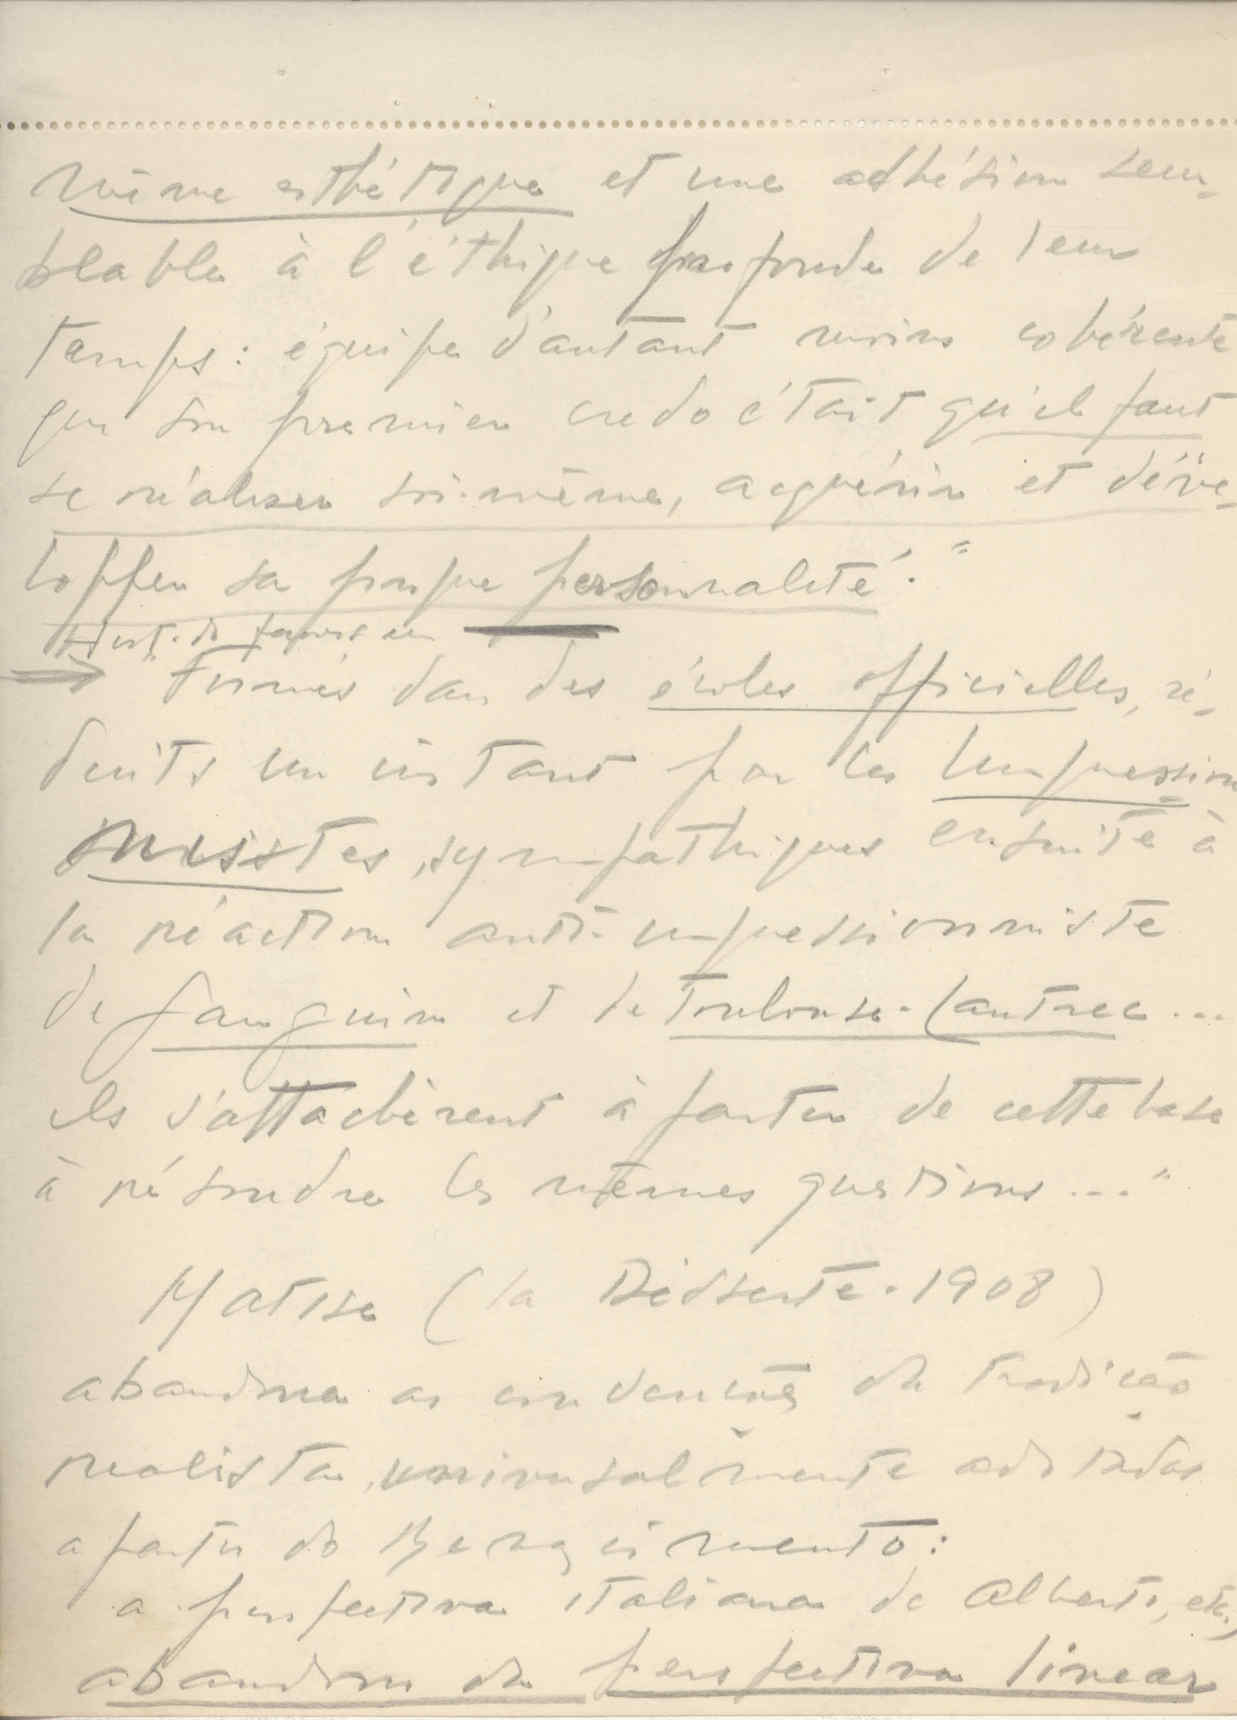 même esthétique et une adhésion sem-
blable à l'éthique profonde de leur
temps: équipe d'autant moins cohérente
que son premier credo était qu'il faut
se réaliser soi-même, acquérir et déve-
lopper sa propre personnalité."
Hist. do
→ Formés dans des écoles officielles, sé-
duits un instant par les Impression
nistes, sympathiques ensuite à
la réaction anti-impressionniste
de Gauguin et de Toulouse-Lautrec...
ils s'attachèrent à partir de cette base
à résoudre les mêmes questions..."
Matisse (la Desserte. 1908)
abandona as convenções da tradição
realista, universalmente adotadas
a partir do Renascimento:
a perspectiva italiana de Alberti, etc.,
abandono da perspectiva linear